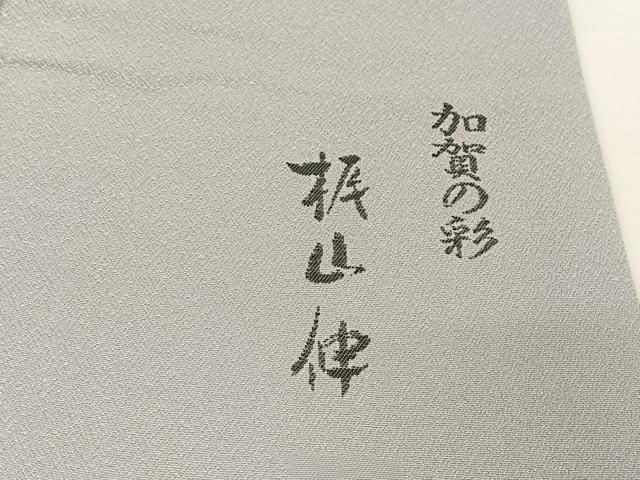 加賀の彩
梶山伸